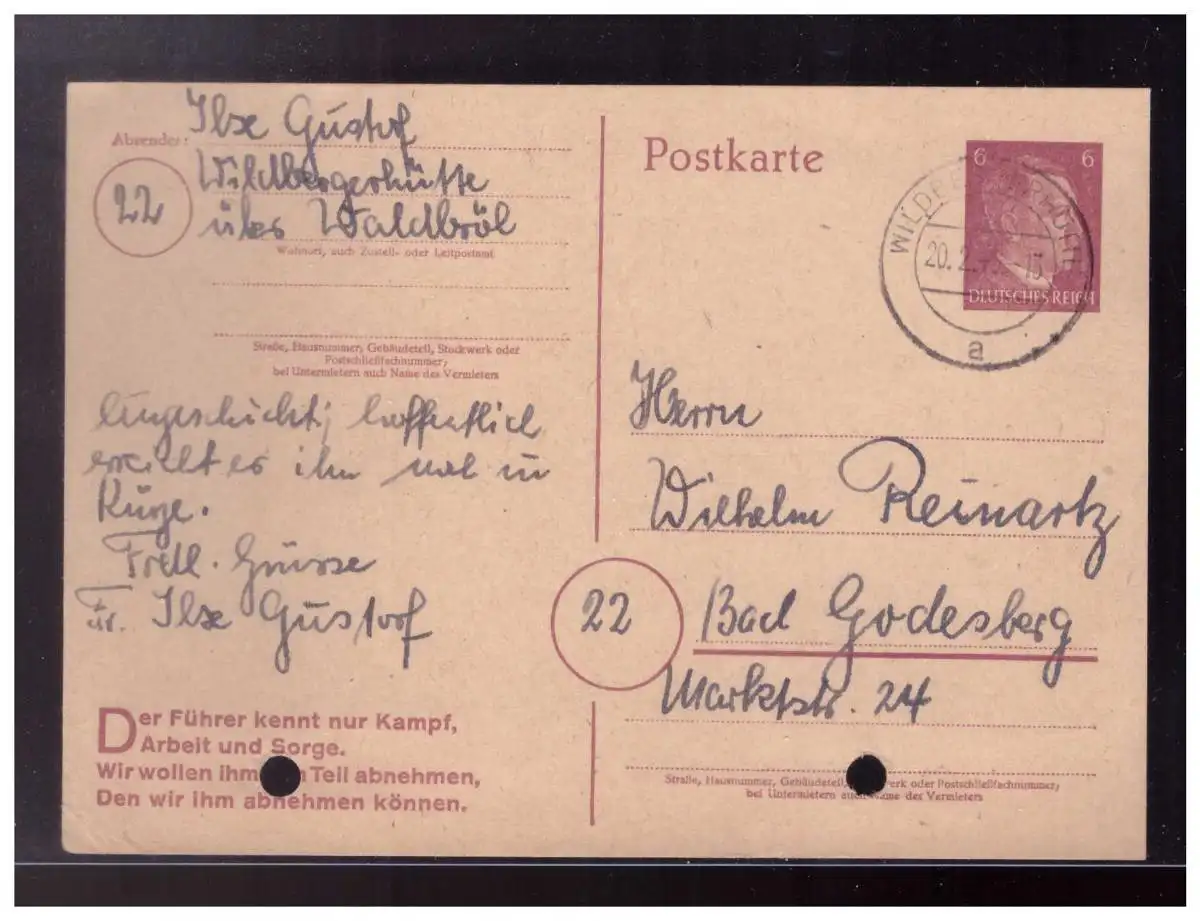 Absender:
Ilse Gustorf
Wildbergerhütte
22
über Waldbröl
Wohnort, auch Zustell- oder Leitpostamt
Straße, Hausnummer, Gebäudeteil, Stockwerk oder
Postschließfachnummer;
bei Untermietern auch Name des Vermieters
hoffentlich
es ihn mal in
Kürze.
Frdl. Grüsse
Ilse Gustorf
Der Führer kennt nur Kampf,
Arbeit und Sorge.
Wir wollen ihm Teil abnehmen,
Den wir ihm abnehmen können.
Postkarte
6 6
DEUTSCHES REICH
20. 2.
a
Herrn
Wilhelm Reinartz
22
Bad Godesberg
Marktstr. 24
Straße, Hausnummer, Gebäudeteil, erk oder Postschließfachnummer;
bei Untermietern auch Name des Vermieters